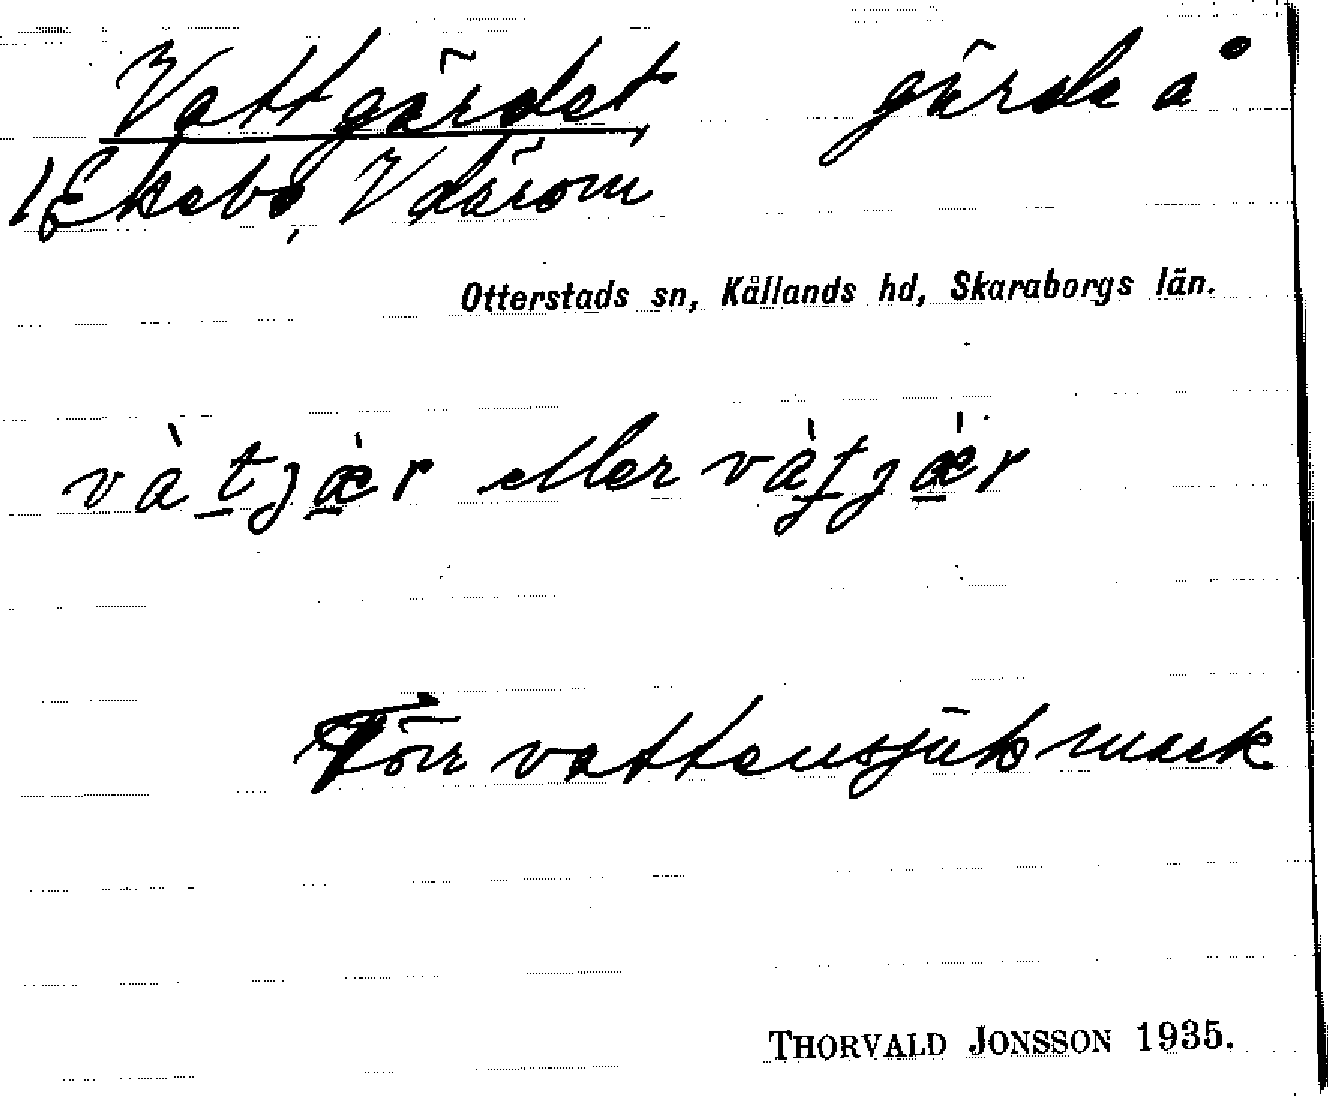 Vattgärdet gärde å
1/Ekebo, V därom
Otterstads sn, Kållands hd, Skaraborgs län.
và t j æ̀ r eller và t j æ̀ r
Förr vattensjuk mark
THORVALD JONSSON 1935.